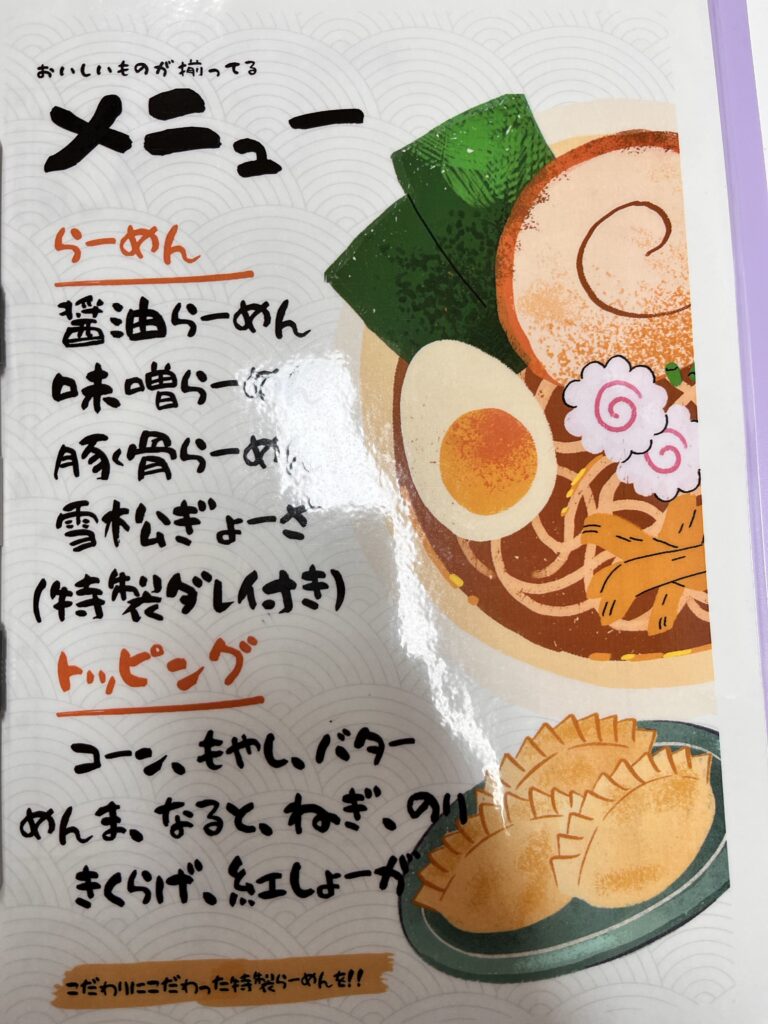 おいしいものが揃ってる
メニュー
らーめん
醤油らーめん
味噌らーめ
豚骨らーめん
雪松ぎょーざ
(特製ダレ付き)
トッピング
コーン、もやし、バター
めんま、なると、ねぎ、のり
きくらげ、紅しょーが
こだわりにこだわった特製らーめんを!!